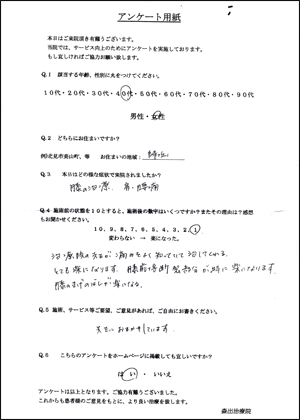 アンケート用紙
本日はご来院頂き有難うございます。
当院では、サービス向上のためにアンケートを実施しております。
もし宜しければご協力お願い致します。
Q.1 該当する年齢、性別に丸をつけてください。
10代・20代・30代・40代・50代・60代・70代・80代・90代
男性・女性
Q.2 どちらにお住まいですか？
例)北見市美山町、等 お住まいの地域：
Q.3 本日はどの様な症状で来院されましたか？
腰の治療
Q.4 施術前の状態を10とすると、施術後の数字はいくつですか？またその理由は？感想
もお聞かせください。
10、9、8、7、6、5、4、3、2、1
変わらない → 楽になった。
とても楽になります。
楽になる。
Q.5 施術、サービス等ご要望、ご意見があれば、ご自由にお書きください。
先生におまかせしています。
Q.6 こちらのアンケートをホームページに掲載しても宜しいですか？
はい・いいえ
アンケートは以上となります。ご協力有難うございました。
これからも患者様のご意見をもとに、より良い治療を致します。
森出治療院